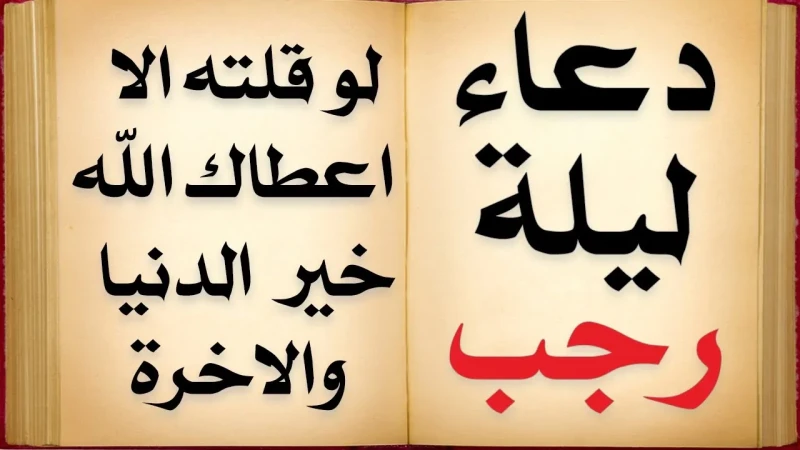 دعاء
ليلة
رجب
لو قلته الا
اعطاك اللّه
خير الدنيا
والاخرة